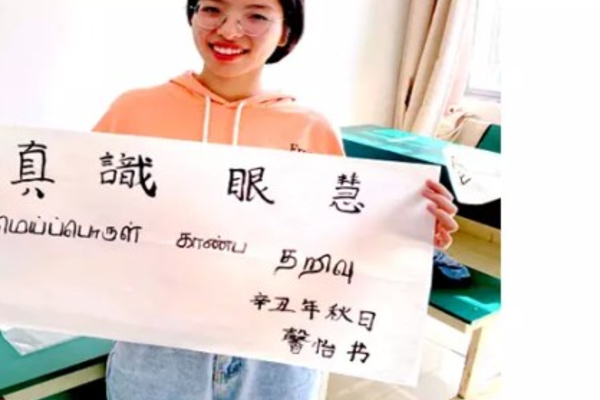 慧 眼 識 真
மெய்ப்பொருள் காண்ப தறிவு
辛丑年秋日
馨怡书